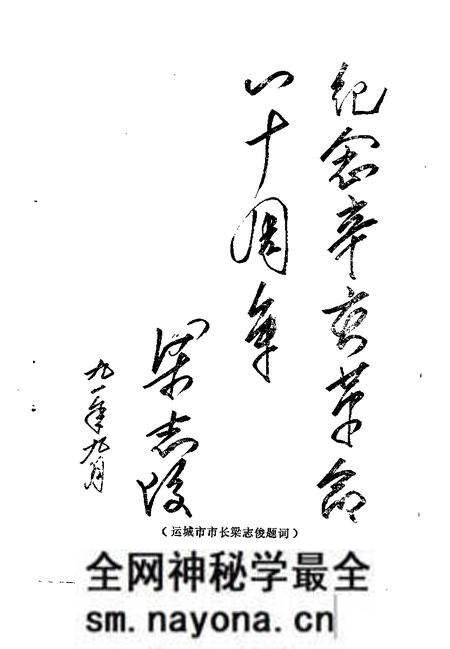 纪念辛亥革命
八十周年
梁志俊
九一年九月
（运城市市长梁志俊题词）
全网神秘学最全
sm.nayona.cn